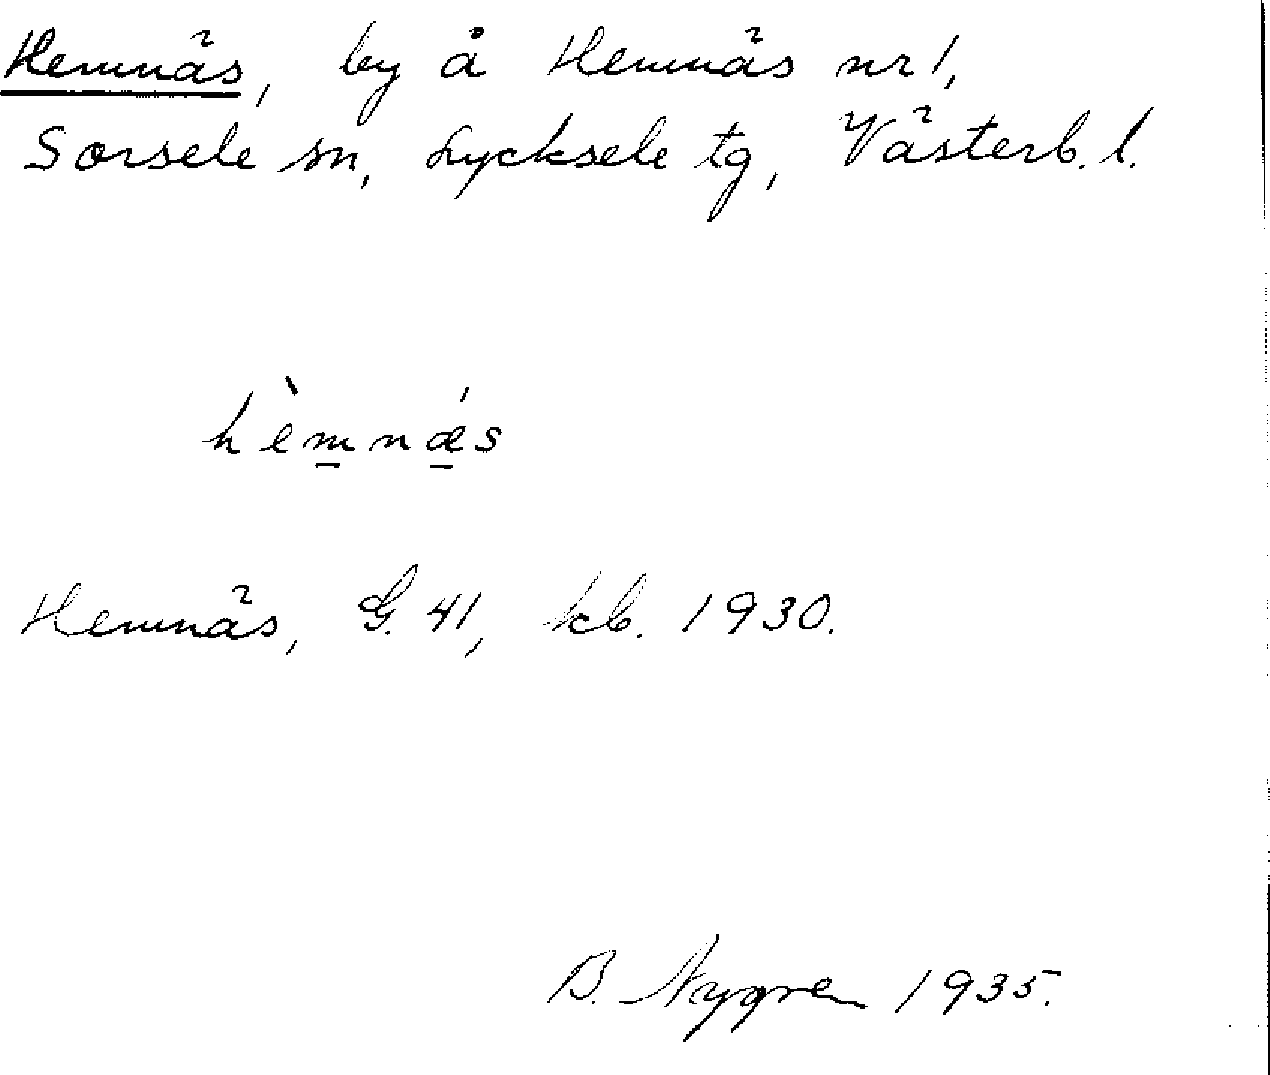 Hemnäs, by å Hemnäs nr 1,
Sorsele sn, Lycksele tg, Västerb. l.
hèm̲nǽ̲s
Hemnäs, G. 41, kb. 1930.
B. Nygren 1935.